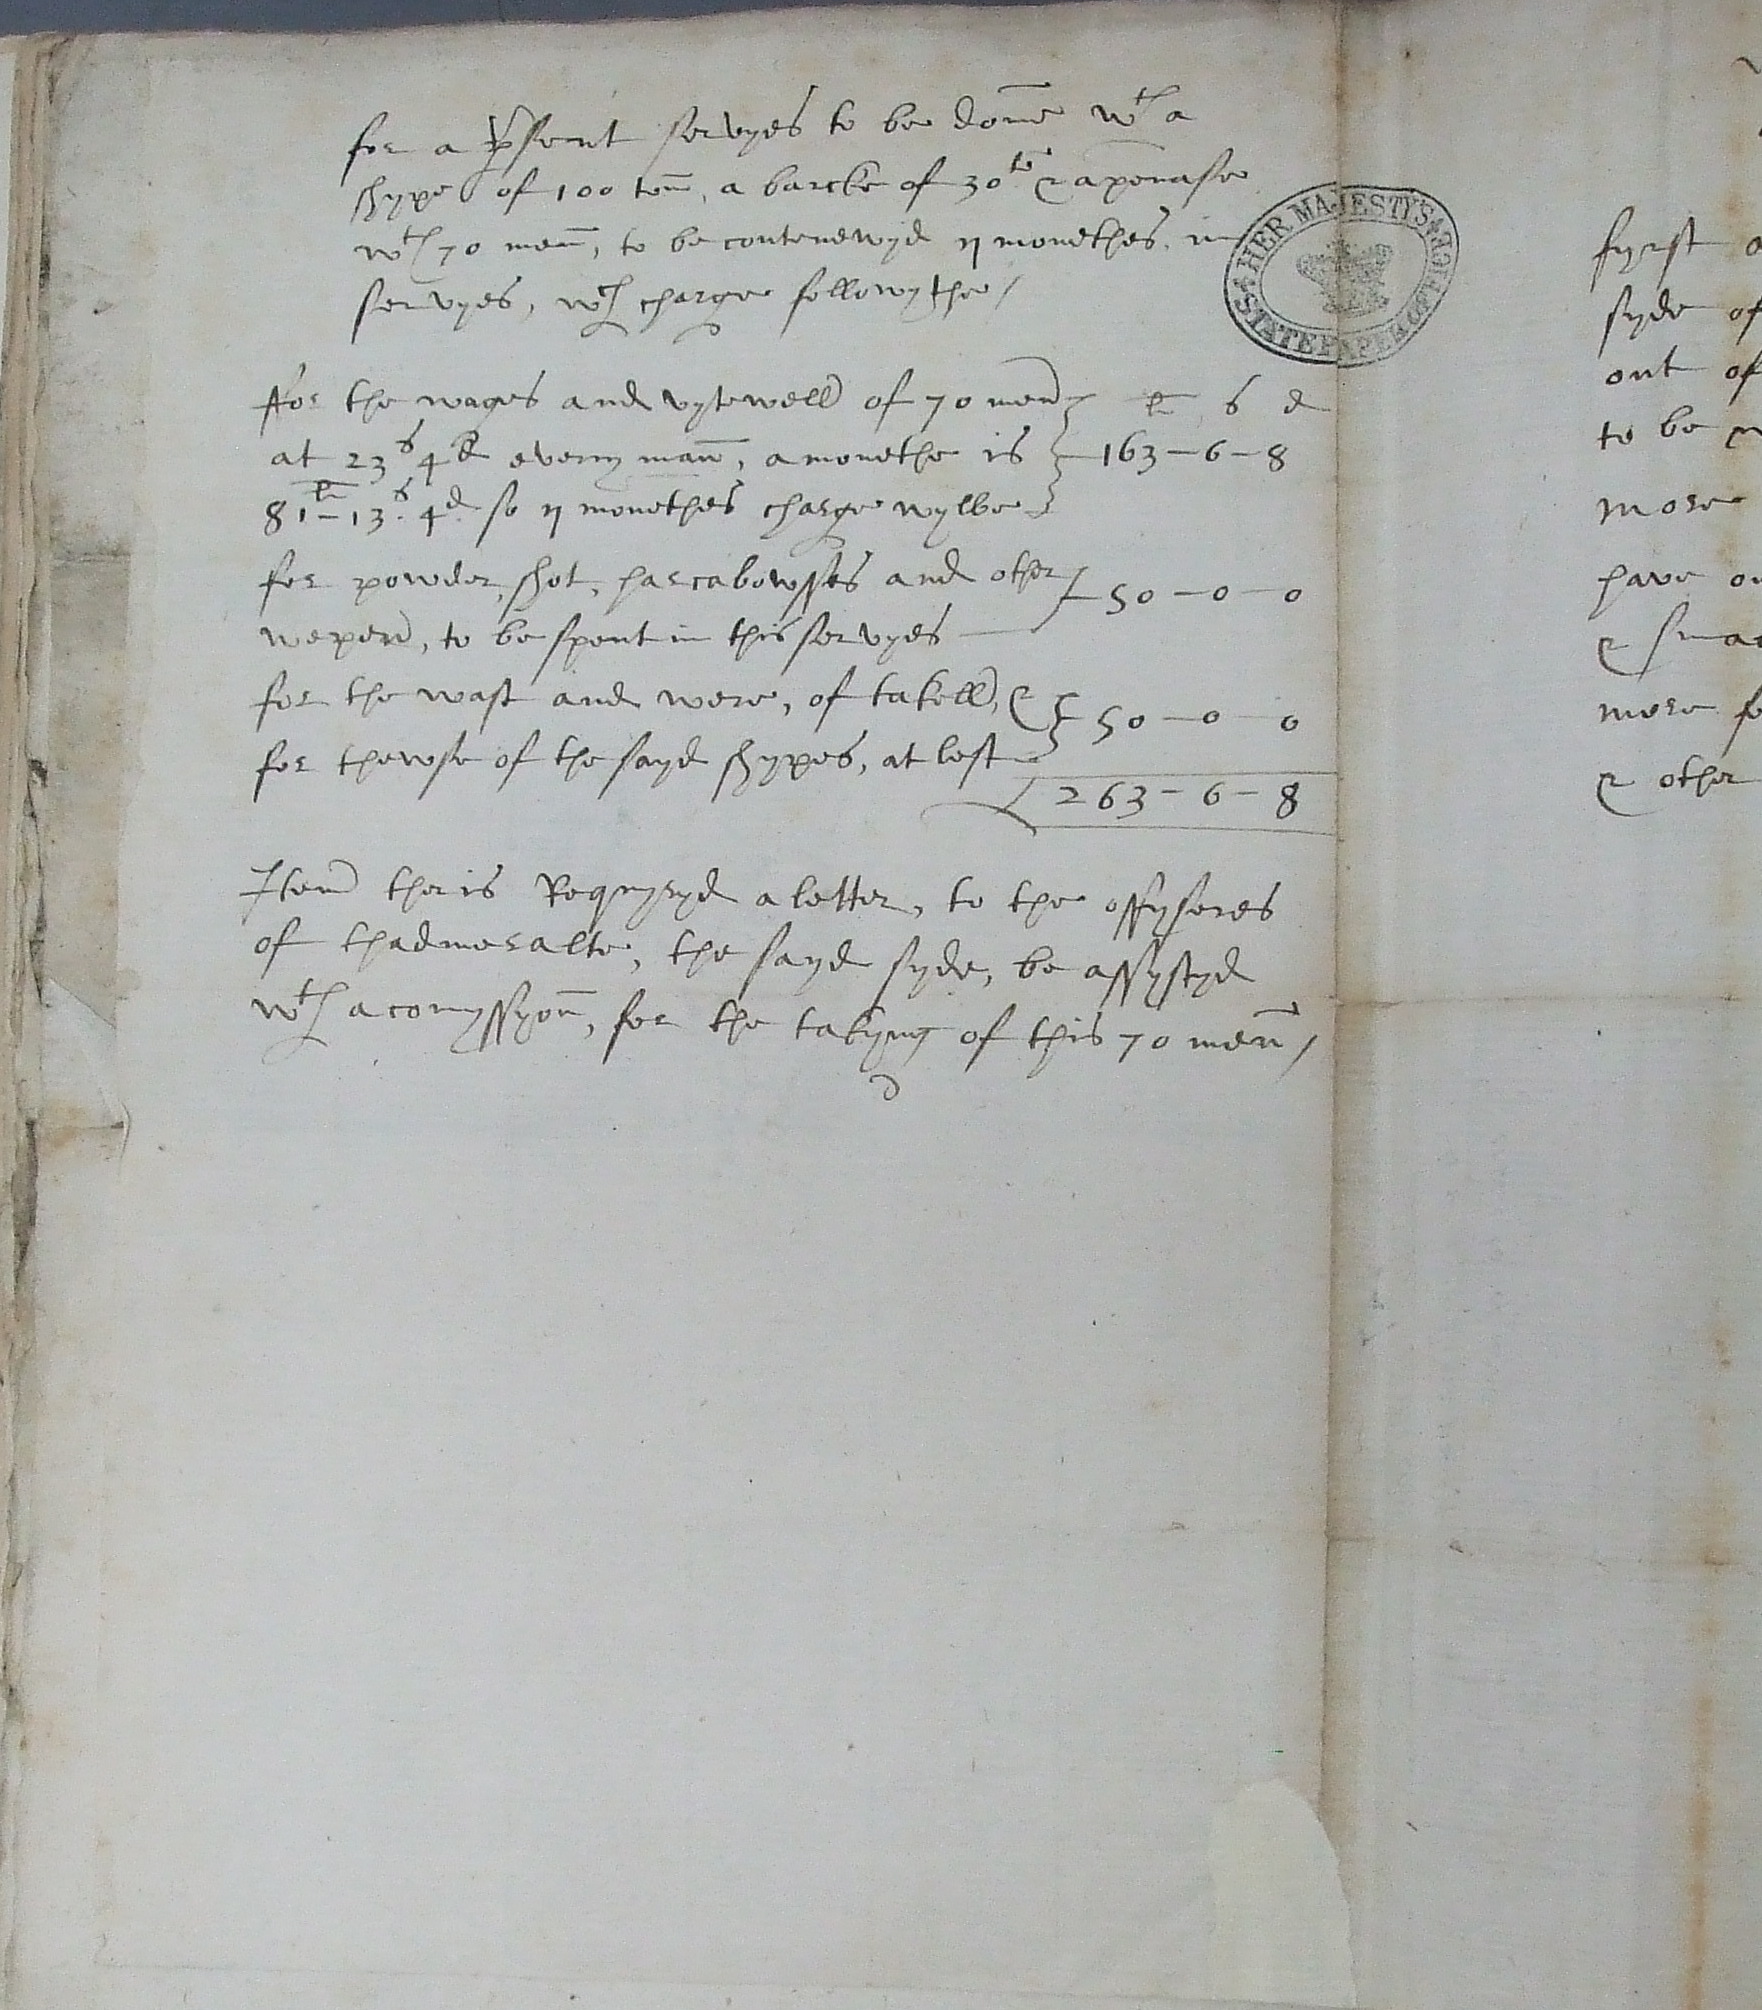 for a p̱sent servyes to be donne wth a
shype of 100 ton, a barcke of 30 to & a penase
wth 70 menn, to be contenewyd ij monethes in
servyes, wch charge followythe /
ffor the wages and vytewell of 70 men
li s d
at 23s 4d every mann, a monethe is 163 - 6 - 8
81li - 13s. 4d. so ij monethes charge wylbe
for powder, shot, harcabowsses and other
50 - 0 - 0
wepen, to be spent in this servyes
for the wast and were, of takell, &
50 - 0 - 0
for thewse of the sayd shypes, at lest
263 - 6 - 8
Item ther is Requyryd a letter, to the offyseres
of thadmeralte, the sayd syde, be assystyd
wth a comyssyon, for the takyng of this 70 menn /
HER MAJESTY'S STATE PAPER OFFICE
fyrst
syde of
out of
to be
more
have
&
more
& other